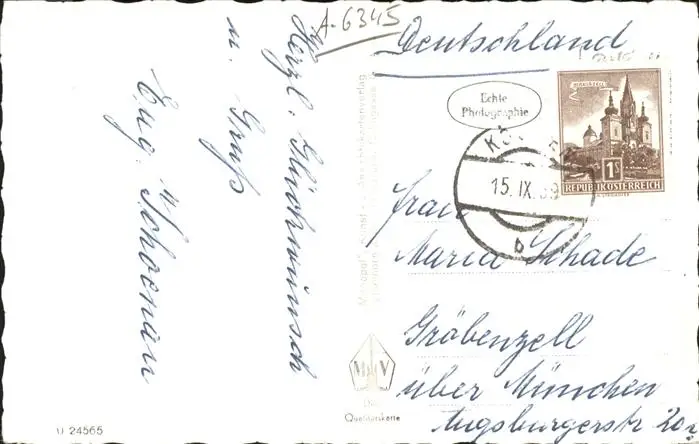 A-6345
Herzl. Glückwunsch
u. Gruß
Eug. Schoenau
Deutschland
Echte
Photographie
MARIAZELL
1S
REPUBLIK ÖSTERREICH
15. IX. 59
b
Frau
Maria Schade
Gröbenzell
über München
Augsburgerstr 20
M V
Die
Qualitätskarte
U 24565